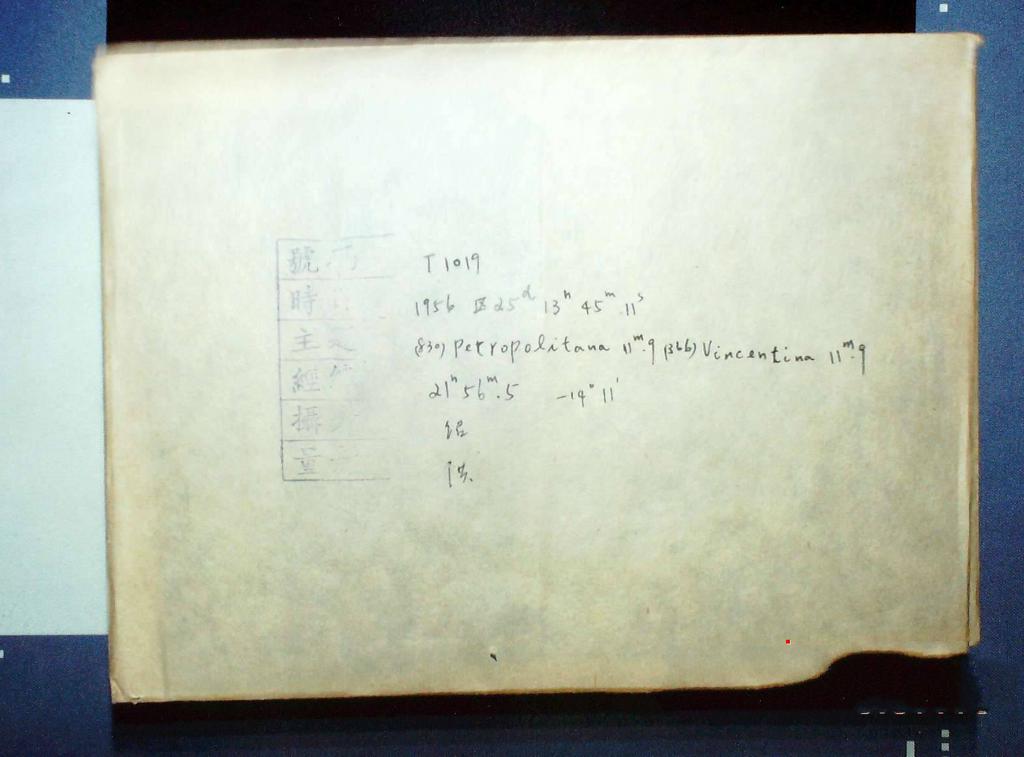 號 T 1019
時 1956 25ᵈ 13ʰ 45ᵐ 11ˢ
主 (830) Petropolitana 11ᵐ.9 (366) Vincentina 11ᵐ.9
經 21ʰ 56ᵐ.5 -14° 11'
攝
量